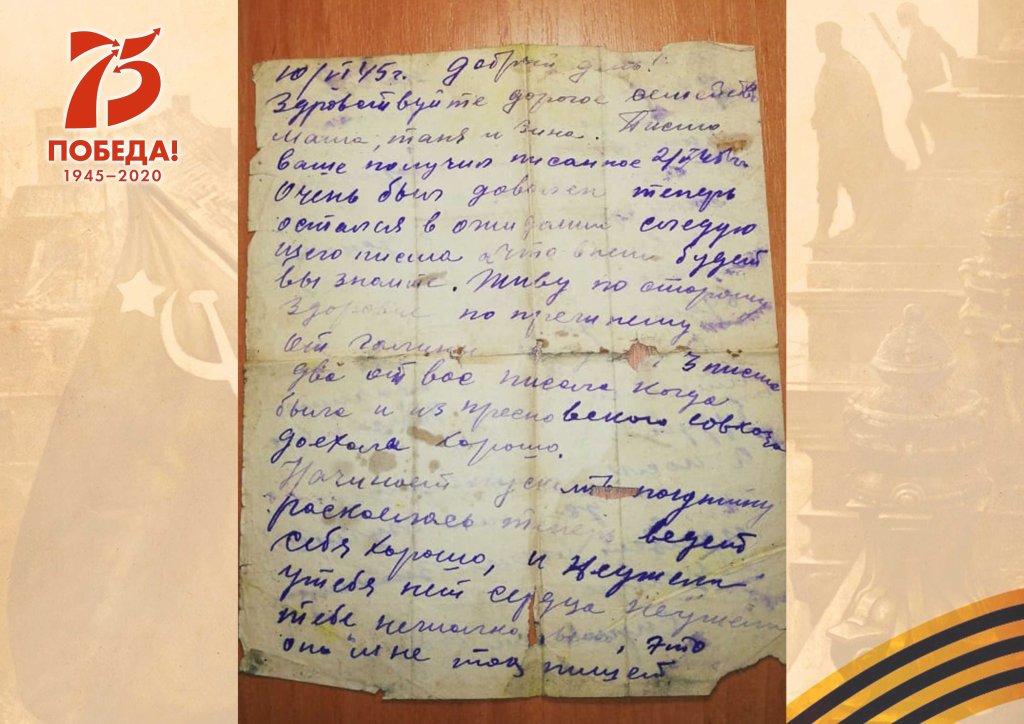 75
ПОБЕДА!
1945–2020
10/VI 45г. Добрый день!
Здравствуйте дорогое семейство
Маша, таня и Зина. Письмо
ваше получил писанное
Очень был доволен теперь
остался в ожидании следую
щего письма а что будет
вы знаите. Живу по старому
Здоровье по прежнему
От галины 3 письма
два от вас писала когда
была и из пресновского совхоза
доехала хорошо.
Начинает
раскаелась теперь ведет
себя хорошо, и неужели
утебя нет сердца неужели
тебе нежалко , это
она мне так пишет